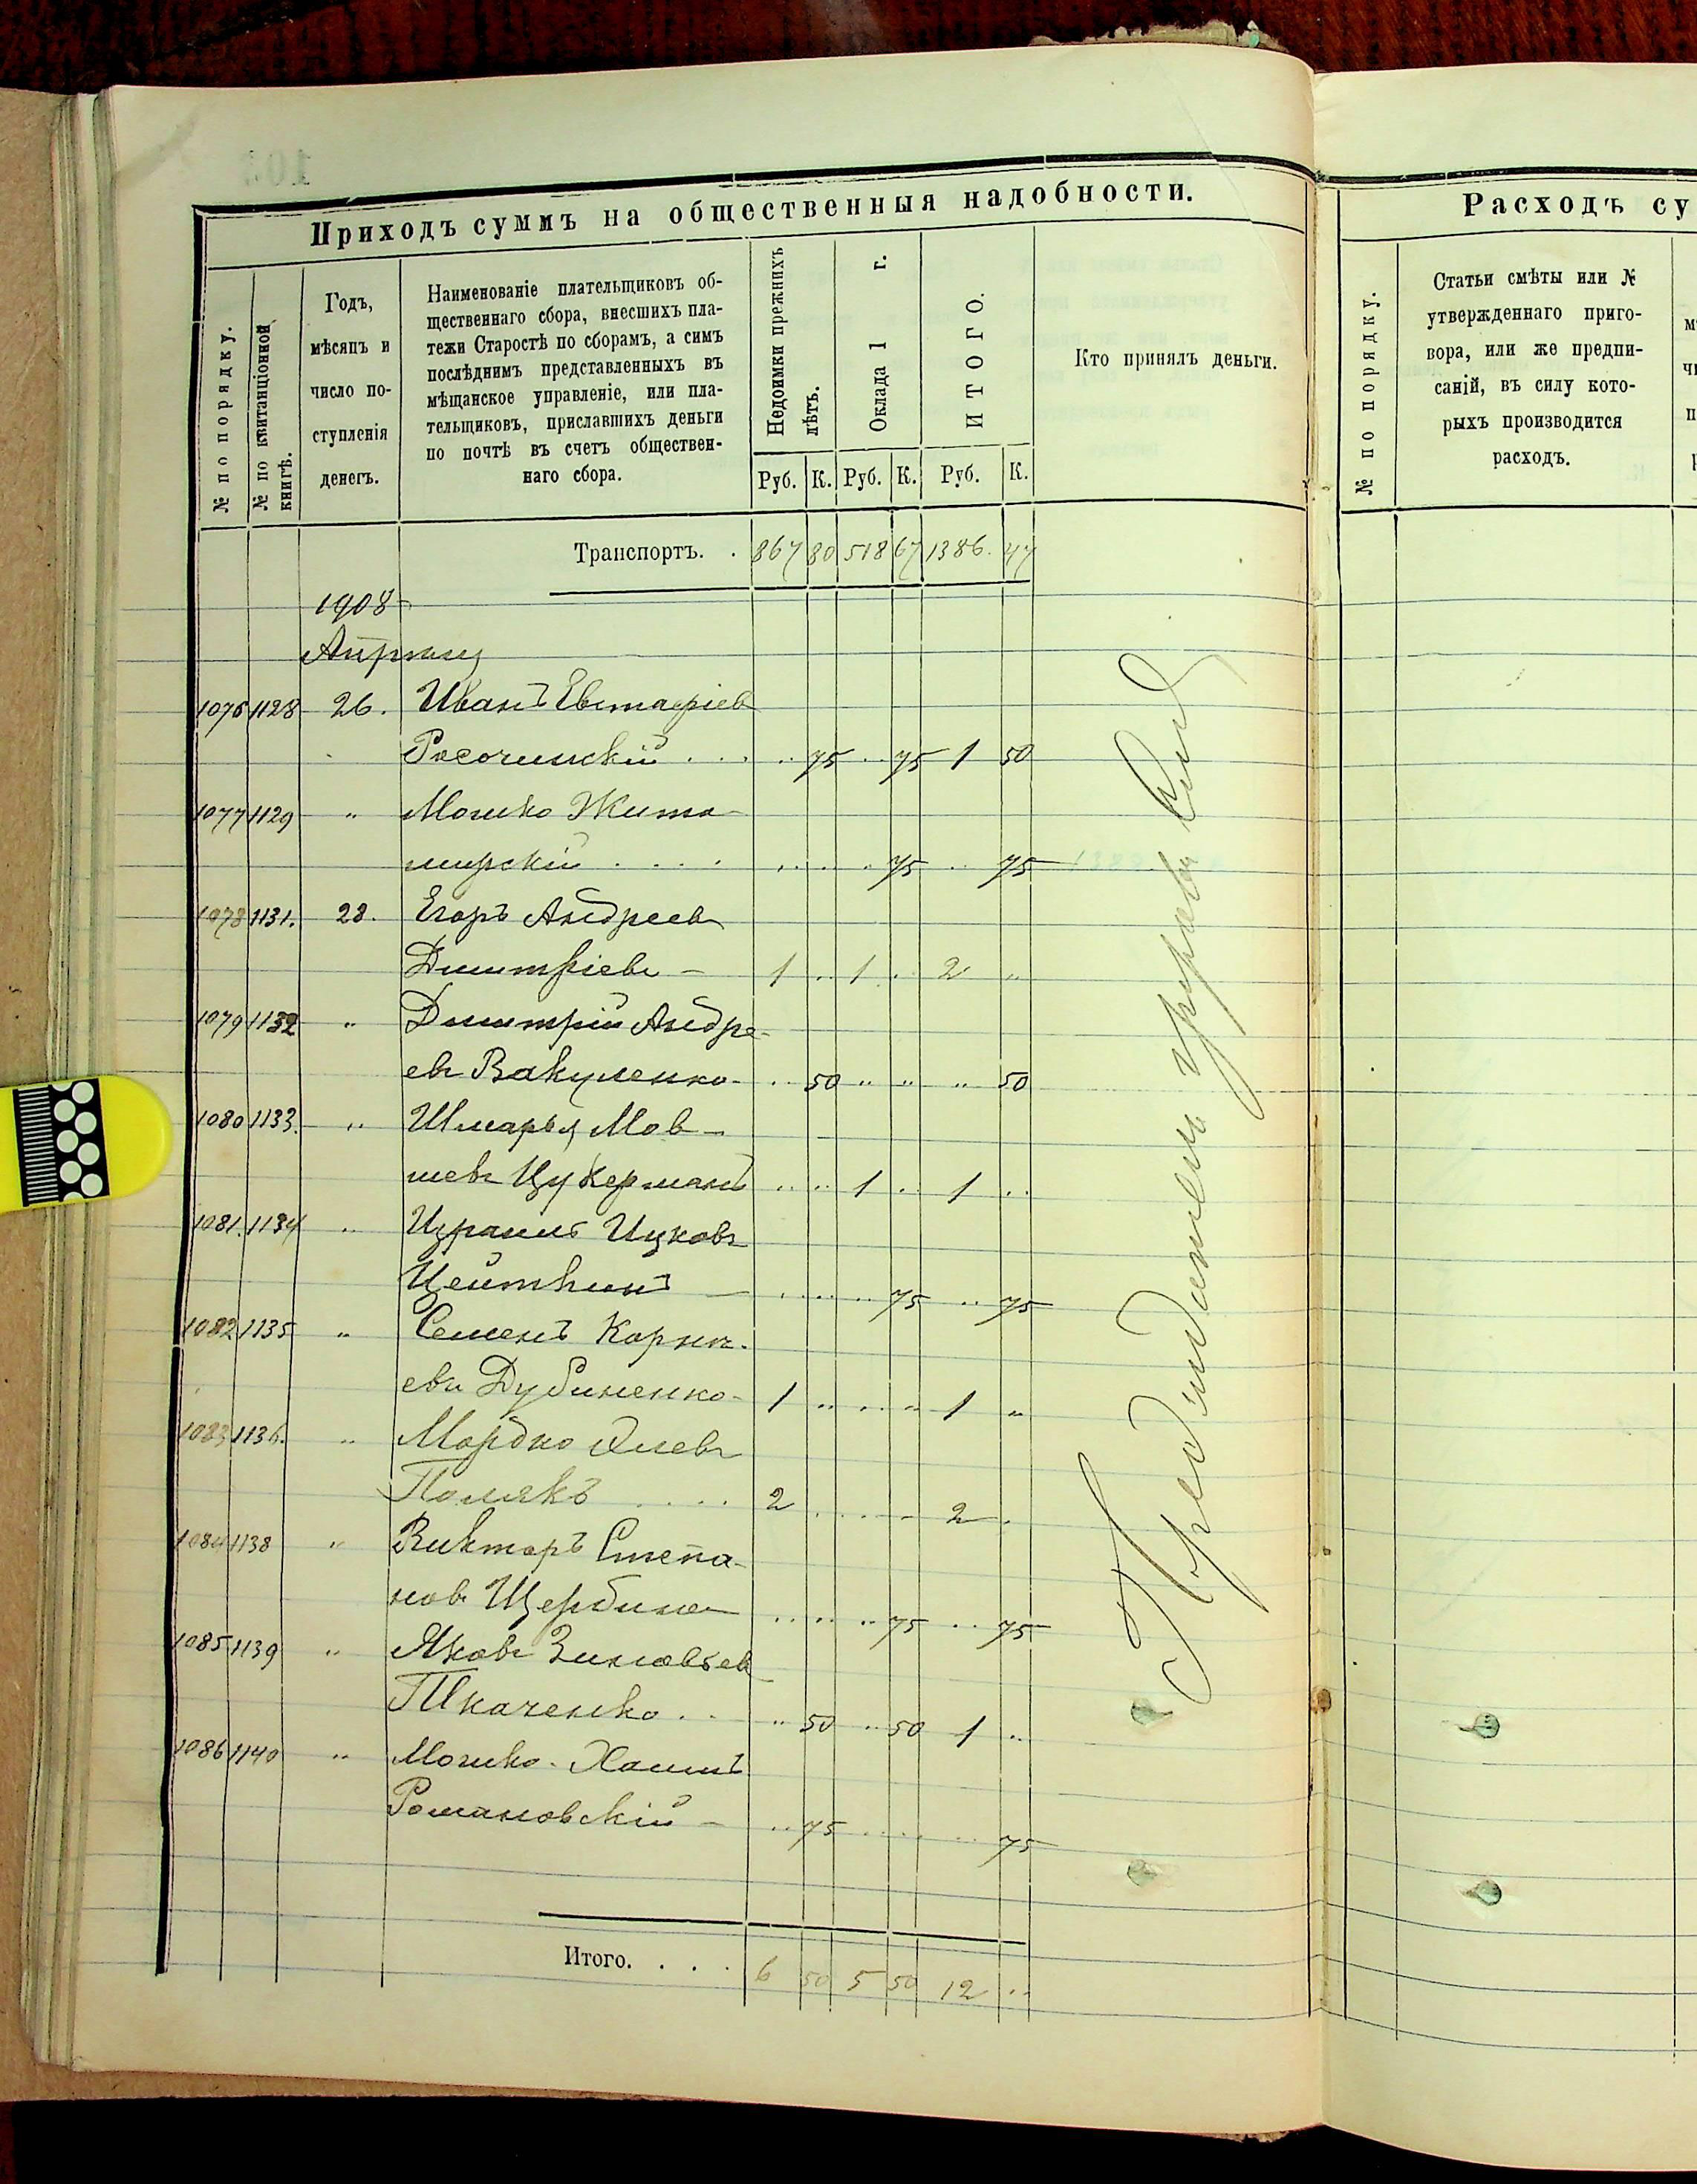 Приходъ суммъ на общественныя надобности.
№ по порядку.
№ по квитанціонной
книгѣ.
Годъ,
мѣсяцъ и
число по-
ступленія
денегъ.
Наименованіе плательщиковъ об-
щественнаго сбора, внесшихъ пла-
тежи Старостѣ по сборамъ, а симъ
послѣднимъ представленныхъ въ
мѣщанское управленіе, или пла-
тельщиковъ, приславшихъ деньги
по почтѣ въ счетъ обществен-
наго сбора.
Недоимки прежнихъ
лѣтъ.
Оклада 1 г.
ИТОГО.
Кто принялъ деньги.
Руб. К. Руб. К. Руб. К.
Транспортъ. . 867 80 518 67 1386. 47
1908
Апрѣля
1076 1128 26. Иванъ Евстафіев
Росочинскій . . . 75 75 1 50
1077 1129 " Мошко Жито-
мирскій . . . . 75 75
1078 1131. 28. Егоръ Андреев
Дмитріевъ - 1 .. 1 . 2 "
1079 1132 " Дмитрій Андре-
евъ Вакуленко - .. 50 " " " 50
1080 1133. " Шмарья Мов-
шевъ Цукерманъ .. .. 1 .. 1 ..
1081. 1134 " Израиль Ицковъ
Цейтлинъ - 75 .. 75
1082 1135 " Семенъ Корне-
евъ Дубиненко - 1 " .. " 1 "
1083 1136. " Мордко
Полякъ . . . . 2 2 .
1084 1138 " Викторъ Степа-
новъ Щербина 75 .. 75
1085 1139 " Яковъ Зиновьев
Ткаченко . . " 50 " 50 1 ..
1086 1140 " Мошко-Хаимъ
Романовскій - .. 75 75
Итого. . . . 6 50 5 50 12 ..
Расходъ су
№ по порядку.
Статьи смѣты или №
утвержденнаго приго-
вора, или же предпи-
саній, въ силу кото-
рыхъ производится
расходъ.